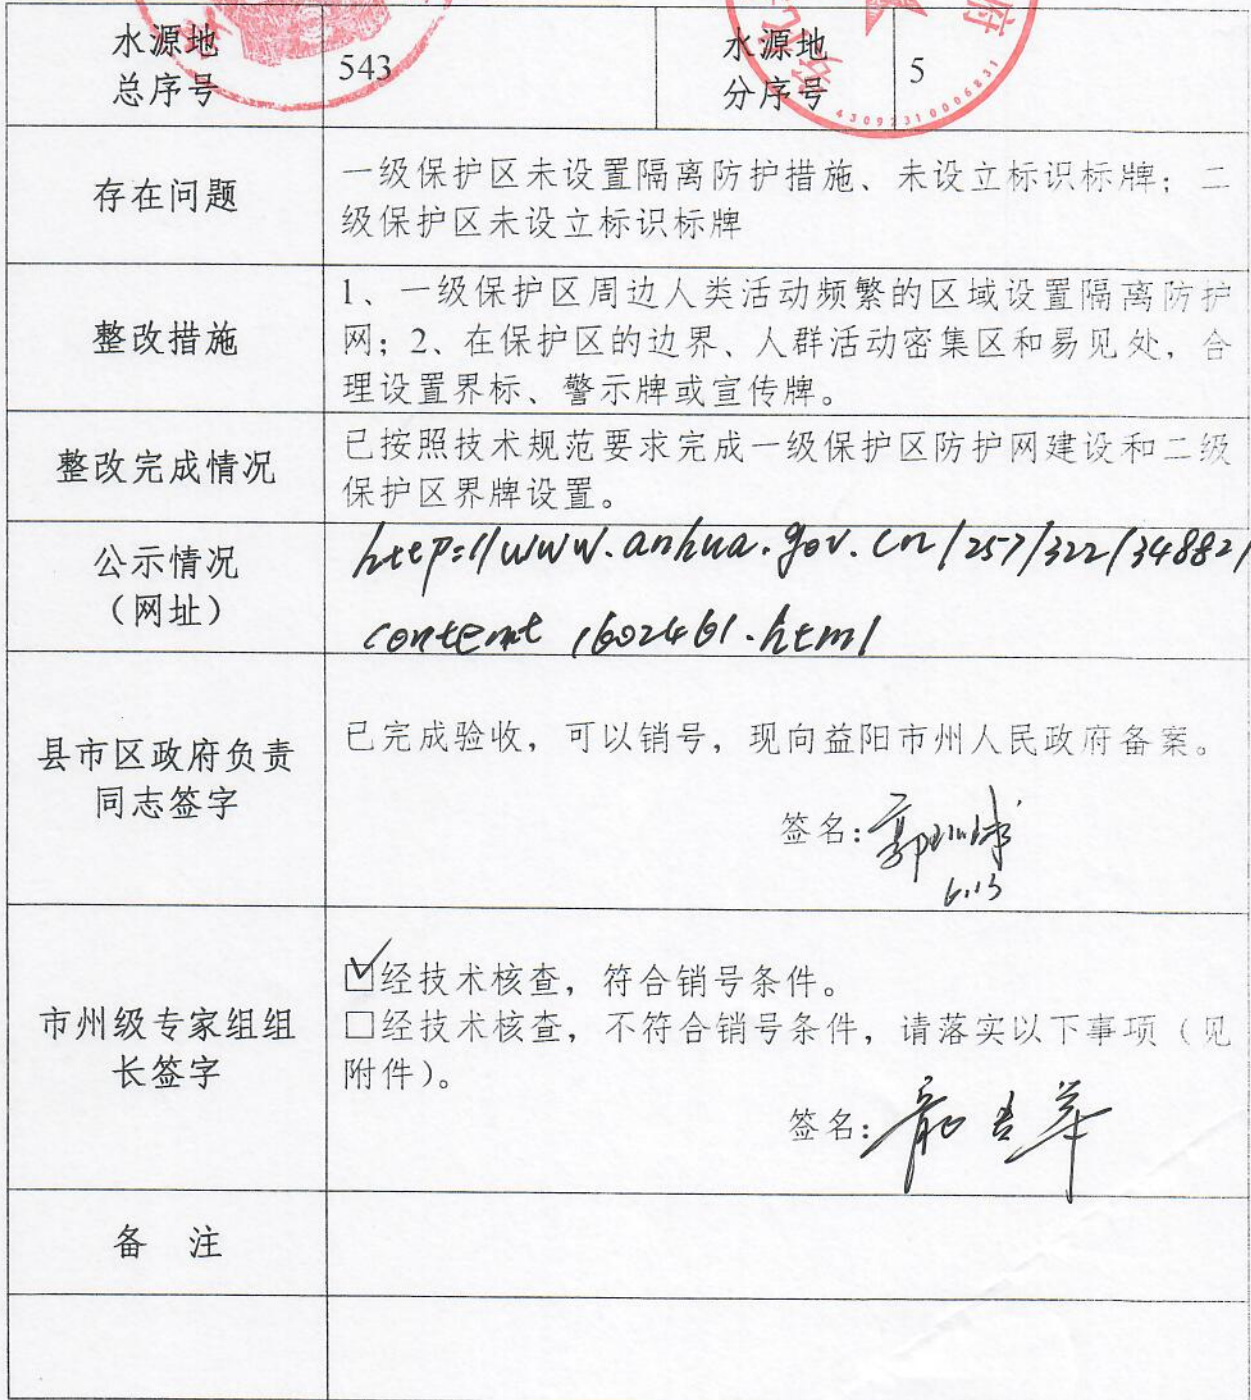 水源地
总序号
543
水源地
分序号
5
府
43092310006831
存在问题
一级保护区未设置隔离防护措施、未设立标识标牌；二
级保护区未设立标识标牌
整改措施
1、一级保护区周边人类活动频繁的区域设置隔离防护
网；2、在保护区的边界、人群活动密集区和易见处，合
理设置界标、警示牌或宣传牌。
整改完成情况
已按照技术规范要求完成一级保护区防护网建设和二级
保护区界牌设置。
公示情况
（网址）
http://www.anhua.gov.cn/257/322/34882/
content_1602461.html
县市区政府负责
同志签字
已完成验收，可以销号，现向益阳市州人民政府备案。
签名：
6.13
市州级专家组组
长签字
☑经技术核查，符合销号条件。
□经技术核查，不符合销号条件，请落实以下事项（见
附件）。
签名：
备 注